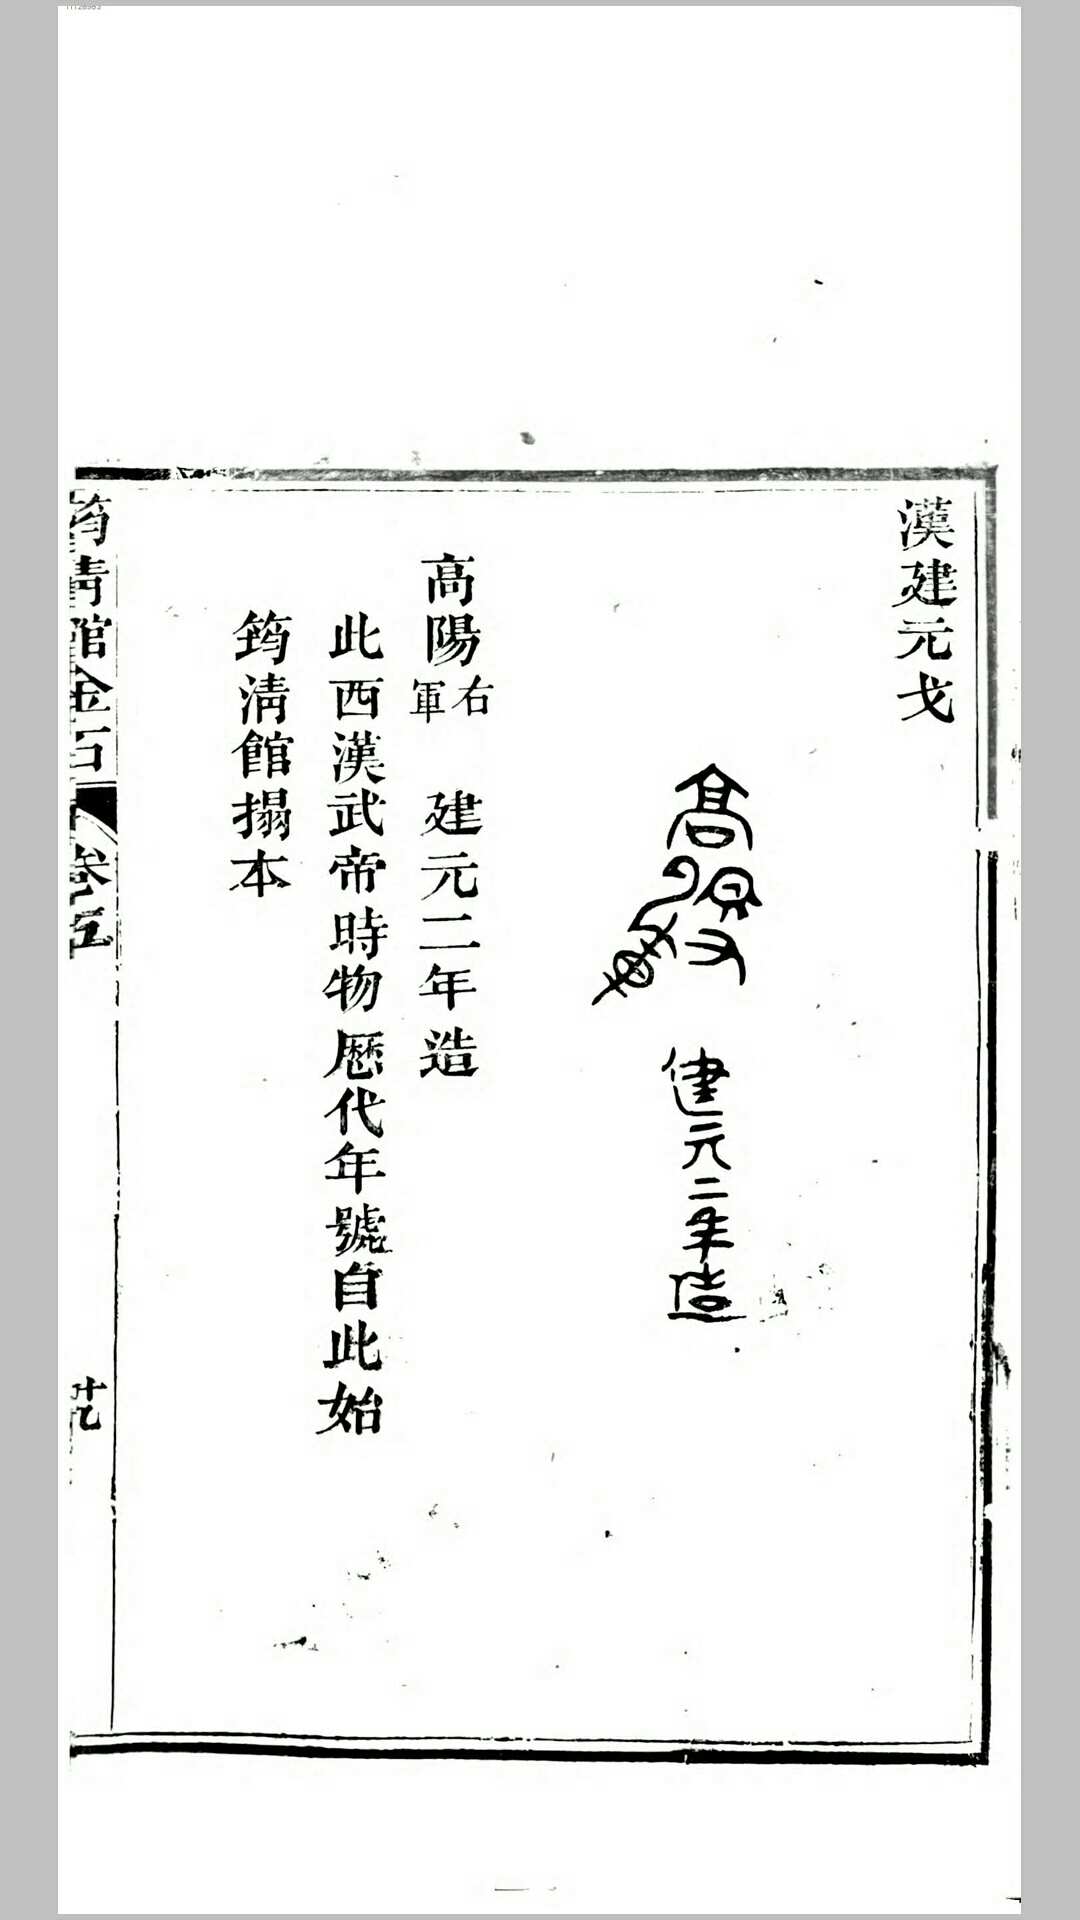 漢建元戈
建元二年造
高陽右軍 建元二年造
此西漢武帝時物歴代年號自此始
筠清館搨本
筠清館金石 卷五